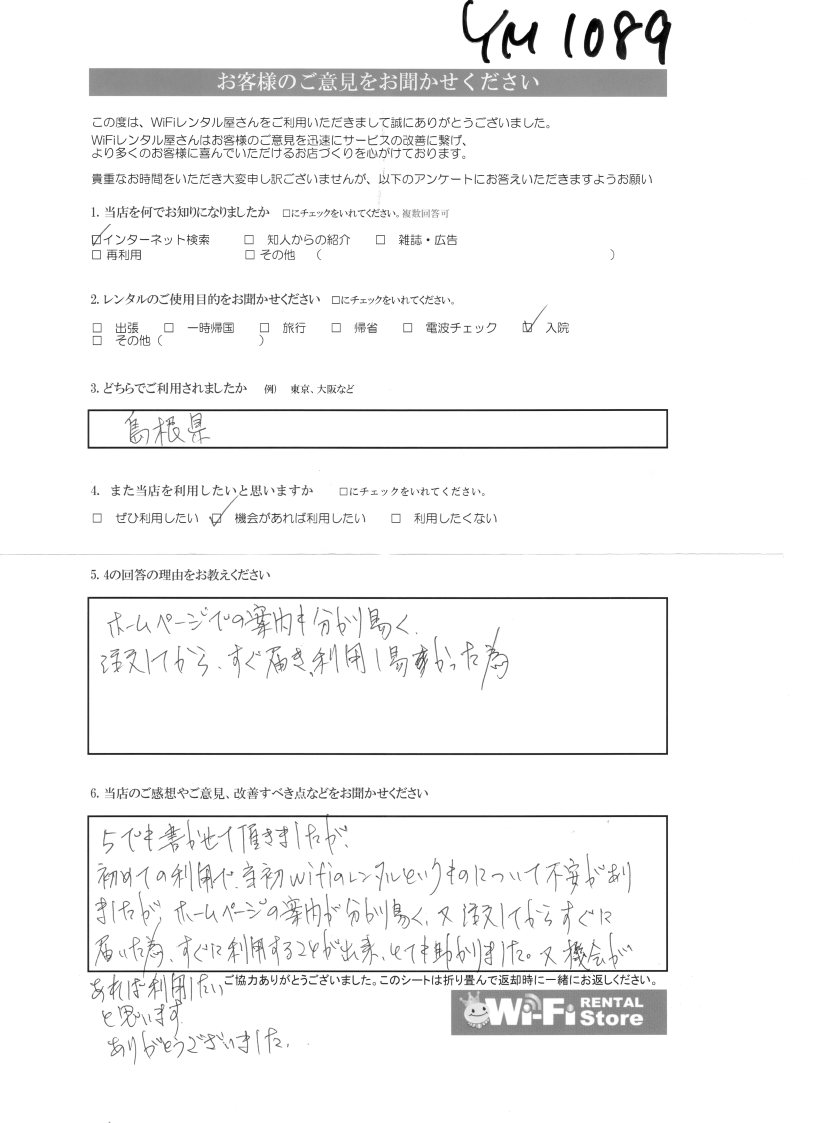 YM 1089
お客様のご意見をお聞かせください
この度は、WiFiレンタル屋さんをご利用いただきまして誠にありがとうございました。
WiFiレンタル屋さんはお客様のご意見を迅速にサービスの改善に繋げ、
より多くのお客様に喜んでいただけるお店づくりを心がけております。
貴重なお時間をいただき大変申し訳ございませんが、以下のアンケートにお答えいただきますようお願い
1. 当店を何でお知りになりましたか □にチェックをいれてください。複数回答可
☑インターネット検索 □ 知人からの紹介 □ 雑誌・広告
□ 再利用 □ その他 ( )
2. レンタルのご使用目的をお聞かせください □にチェックをいれてください。
□ 出張 □ 一時帰国 □ 旅行 □ 帰省 □ 電波チェック ☑ 入院
□ その他 ( )
3. どちらでご利用されましたか 例) 東京、大阪など
島根県
4. また当店を利用したいと思いますか □にチェックをいれてください。
□ ぜひ利用したい ☑ 機会があれば利用したい □ 利用したくない
5. 4の回答の理由をお教えください
ホームページでの案内も分かり易く、
注文してから、すぐ届き、利用し易すかった為
6. 当店のご感想やご意見、改善すべき点などをお聞かせください
5でも書かせて頂きましたが、
初めての利用で、当初wifiのレンタルというものについて不安があり
ましたが、ホームページの案内が分かり易く、又注文してからすぐに
届いた為、すぐに利用することが出来、とても助かりました。又機会が
あれば利用したい
と思います。
ありがとうございました。
ご協力ありがとうございました。このシートは折り畳んで返却時に一緒にお返しください。
Wi-Fi RENTAL Store